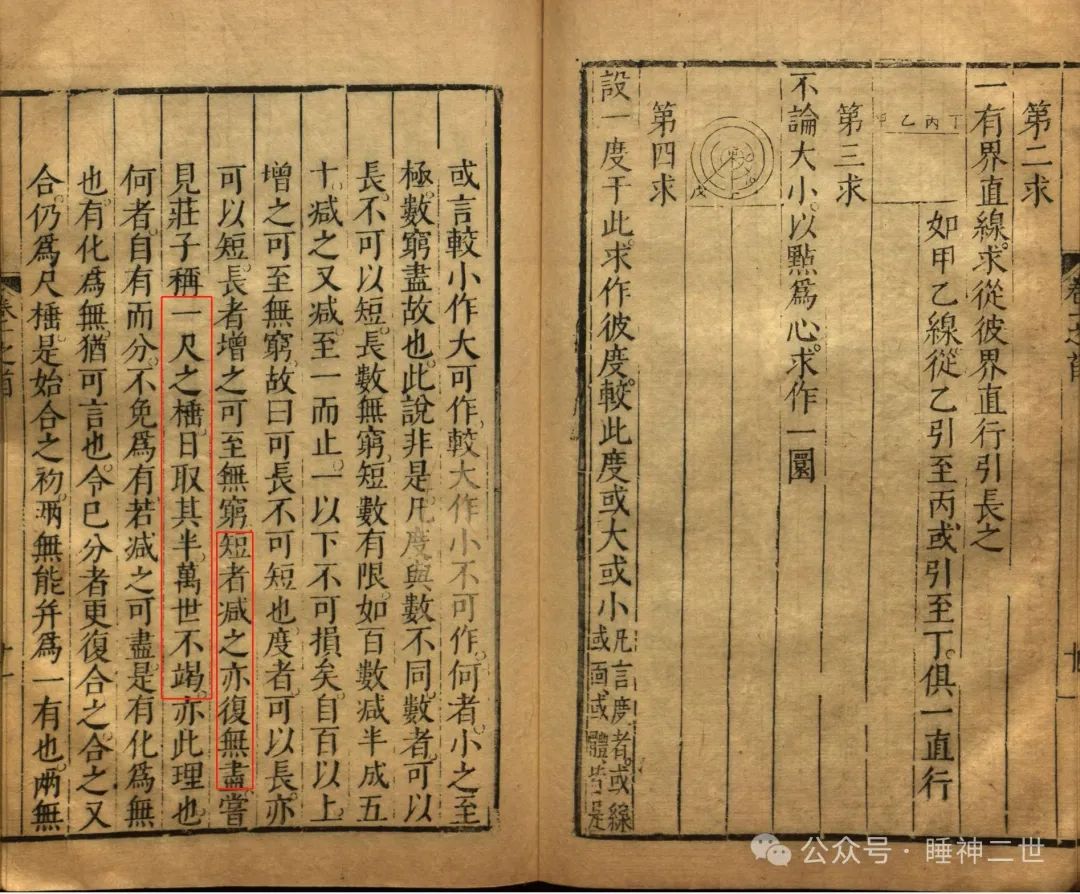 第二求
一有界直線。求從彼界直行引長之
如甲乙線從乙引至丙或引至丁。俱一直行
丁丙乙甲
第三求
不論大小。以點爲心。求作一圜
第四求
設一度于此。求作彼度。較此度或大或小
凡言度者。或線
或面或體皆是
或言較小作大可作。較大作小不可作。何者。小之至
極。數窮盡故也。此說非是。凡度與數不同。數者。可以
長。不可以短。長數無窮。短數有限。如百數減半成五
十。減之又減至一而止。一以下不可損矣。自百以上
增之可至無窮。故曰可長不可短也。度者。可以長。亦
可以短。長者增之可至無窮。短者減之亦復無盡。嘗
見莊子稱一尺之棰。日取其半。萬世不竭。亦此理也
何者。自有而分。不免爲有。若減之可盡。是有化爲無
也。有化爲無。猶可言也。令已分者更復合之。合之又
合。仍爲尺棰。是始合之初。兩無能幷爲一有也。兩無
公众号·睡神二世